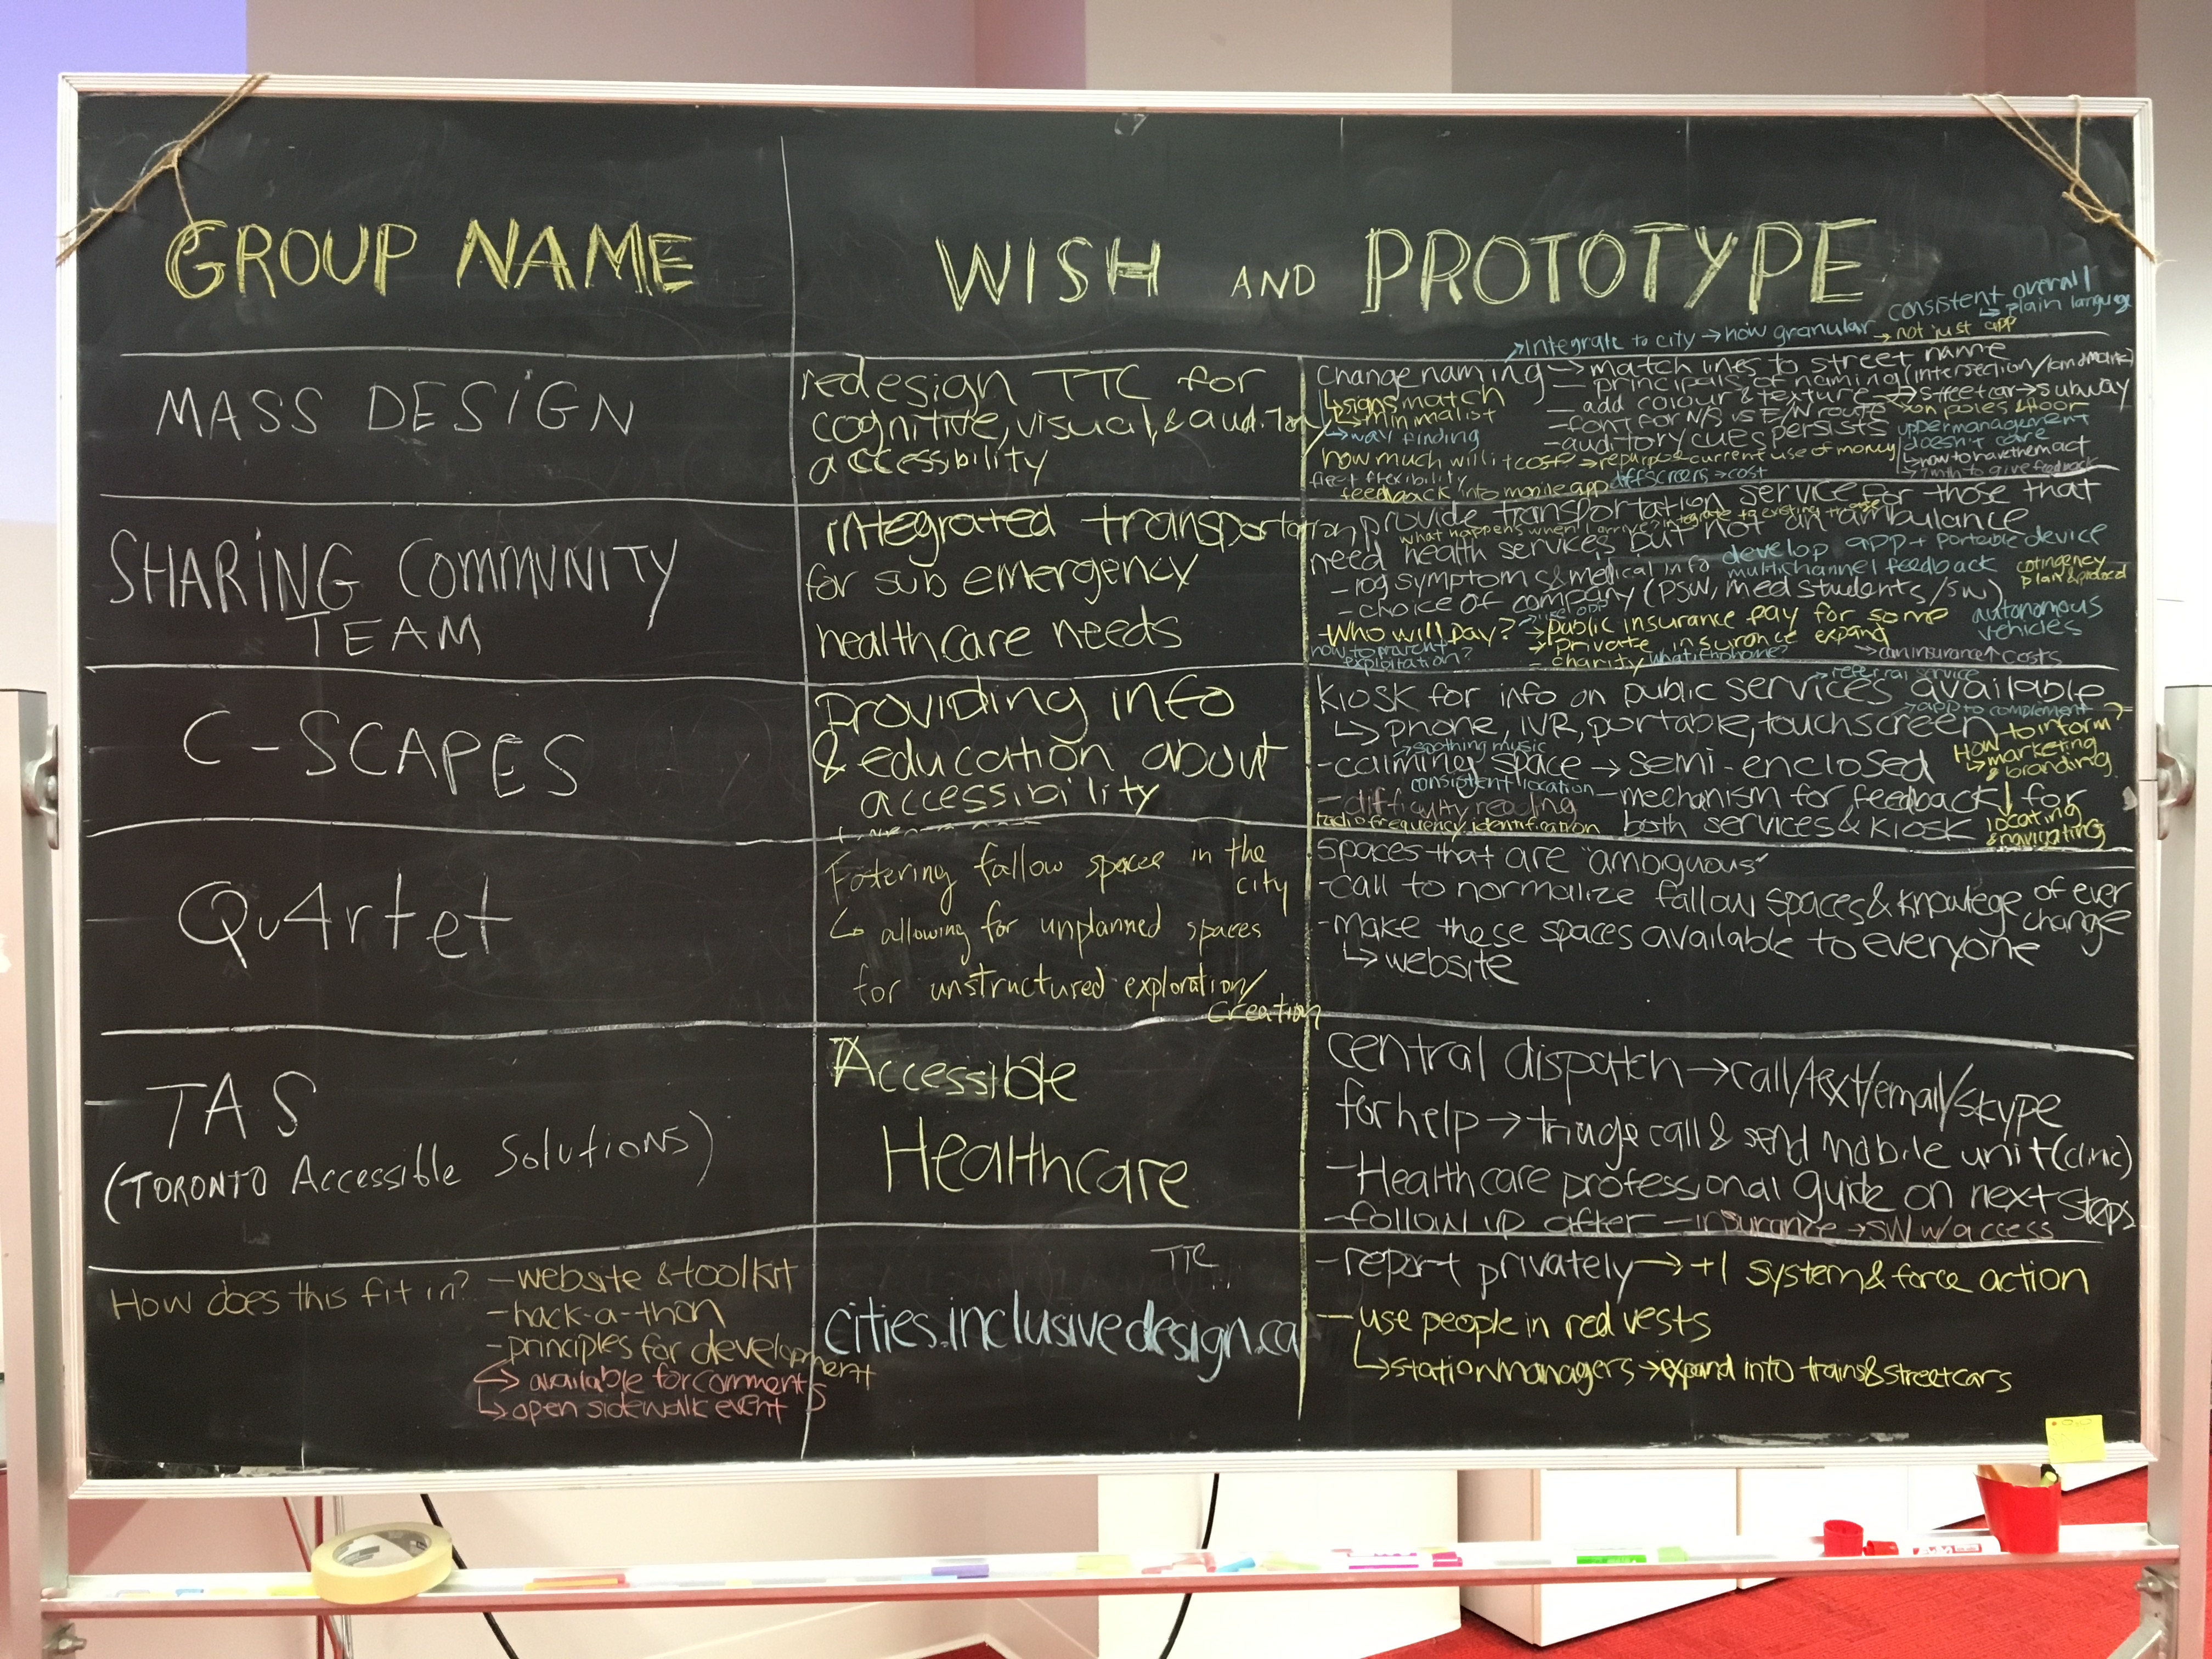 GROUP NAME
WISH AND PROTOTYPE
consistent overall
↳ plain language
↗Integrate to city → how granular → not just app
MASS DESiGN
redesign TTC for
cognitive, visual, & auditory
accessibility
Change naming → match lines to street name
— principals of naming (intersection/landmark)
↳ signs match
— add colour & texture → streetcar → subway
↳ minimalist
→ on poles & floor
— font for N/S vs E/W route
→ way finding
— auditory cues persists
upper management
doesn't care
how much will it cost? → repurpose current use of money
↳ how to have them act
fleet flexibility
diff screens → cost
feedback into mobile app
SHARiNG COMMUNITY
TEAM
integrated transportation
for sub emergency
healthcare needs
provide transportation service for those that
what happens when I arrive? integrate to existing
need health services but not an ambulance
develop app + portable device
- log symptoms & medical info
multichannel feedback
- choice of company (PSW, med students / SW)
plan & protocol
autonomous
vehicles
- Who will pay? → public insurance pay for some
→ private insurance expand
how to prevent
exploitation?
- charity
what if no phone?
→ can insurance ↑ costs
C-SCAPES
providing info
& education about
accessibility
→ referral service
kiosk for info on public services available
→ app to complement
↳ phone, IVR, portable, touchscreen
How to inform?
↳ marketing
& branding
→ soothing music
- calming space → semi-enclosed
consistent location
- difficulty reading
- mechanism for feedback for
both services & kiosk
radio frequency identification
↓
locating
& navigating
Qu4rtet
Fostering fallow spaces in the
city
↳ allowing for unplanned spaces
for unstructured exploration/
creation
spaces that are "ambiguous"
- call to normalize fallow spaces & knowlege of ever
change
- make these spaces available to everyone
↳ website
TAS
(TORONTO Accessible Solutions)
Accessible
Healthcare
central dispatch → call/text/email/skype
for help → triage call & send mobile unit (clinic)
- Healthcare professional guide on next steps
- follow up after — insurance → SW w/ access
How does this fit in?
- website & toolkit
- hack-a-thon
- principles for development
↳ available for comments
↳ open sidewalk event
TTC
cities.inclusivedesign.ca
- report privately → +1 system & force action
- use people in red vests
↳ station managers → expand into trains & streetcars